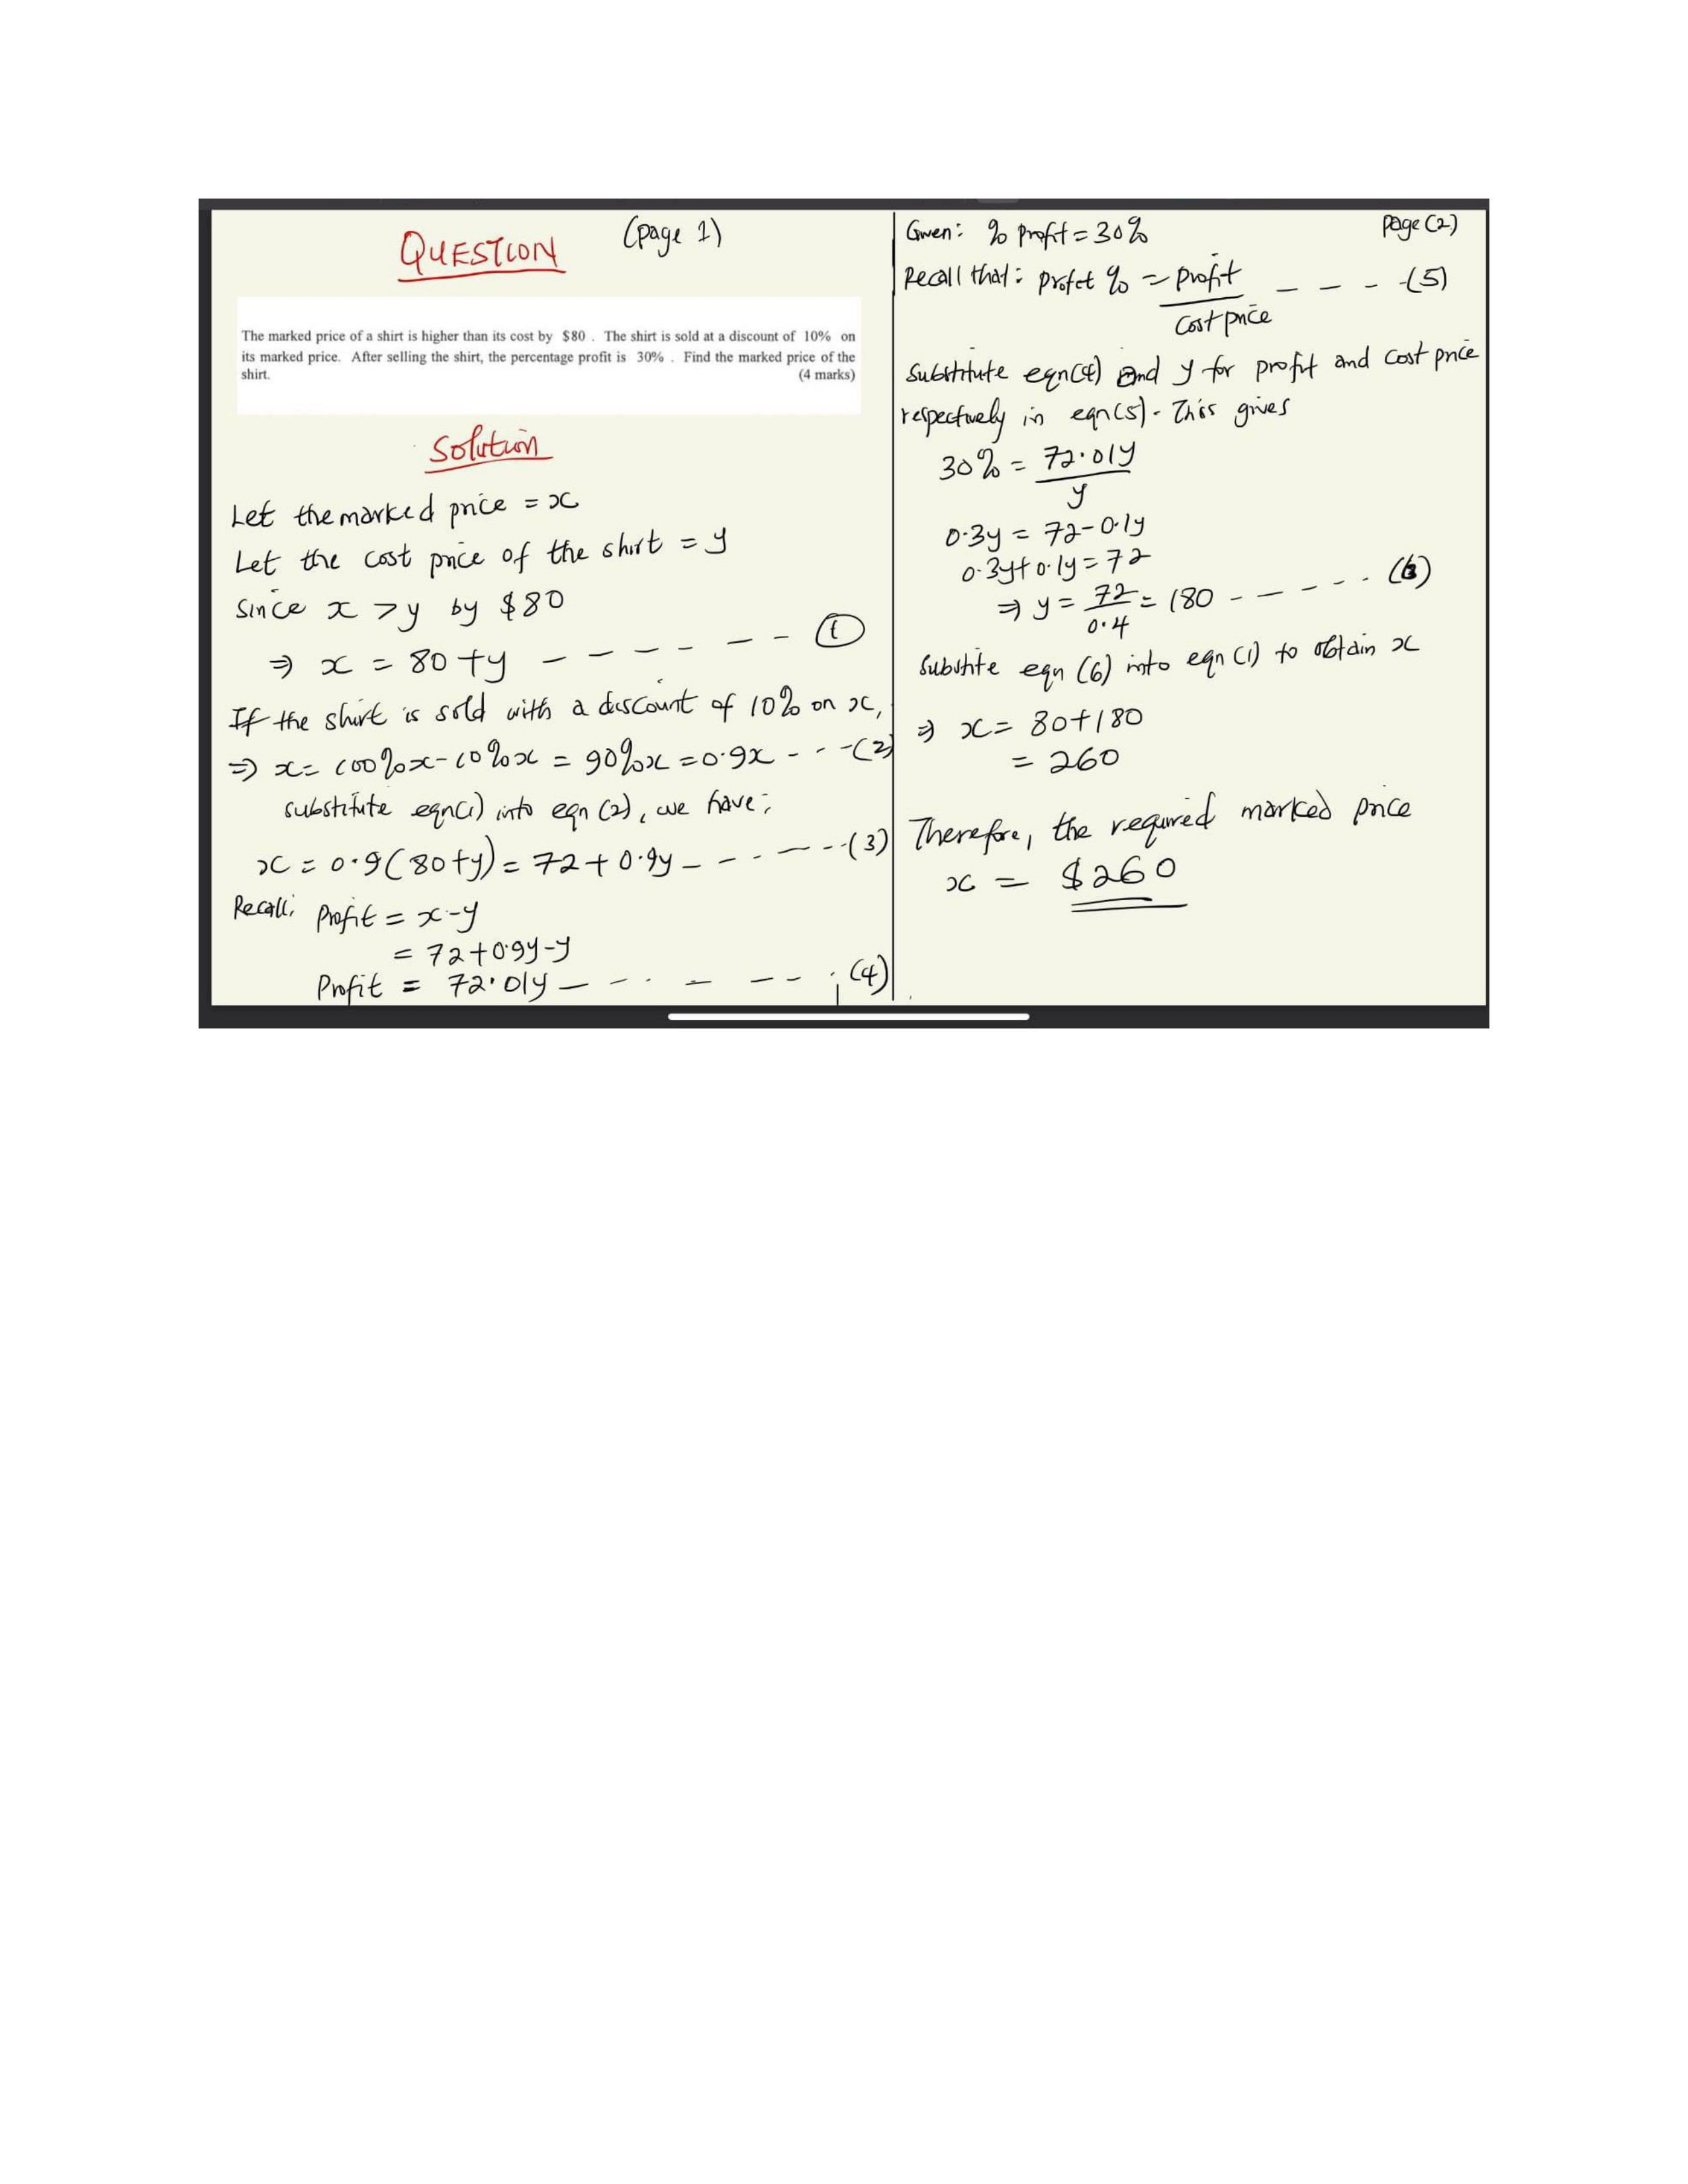 (page 1)
QUESTION
The marked price of a shirt is higher than its cost by $80 . The shirt is sold at a discount of 10% on
its marked price. After selling the shirt, the percentage profit is 30% . Find the marked price of the
shirt. (4 marks)
Solution
Let the marked price = x
Let the cost price of the shirt = y
Since x > y by $80
⇒ x = 80 + y - - - - - - ①
If the shirt is sold with a discount of 10% on x,
⇒ x = 100%x - 10%x = 90%x = 0.9x - - - (2)
substitute eqn(1) into eqn (2), we have;
x = 0.9(80+y) = 72 + 0.9y - - - - - - (3)
Recall; Profit = x - y
= 72 + 0.9y - y
Profit = 72.01y - - - - - - (4)
page (2)
Given: % profit = 30%
Recall that: profit % = profit - - - - (5)
cost price
Substitute eqn(4) and y for profit and cost price
respectively in eqn(5). This gives
30% = 72.01y
y
0.3y = 72 - 0.1y
0.3y + 0.1y = 72
⇒ y = 72 = 180 - - - - - - (6)
0.4
Substite eqn (6) into eqn (1) to obtain x
⇒ x = 80 + 180
= 260
Therefore, the required marked price
x = $260